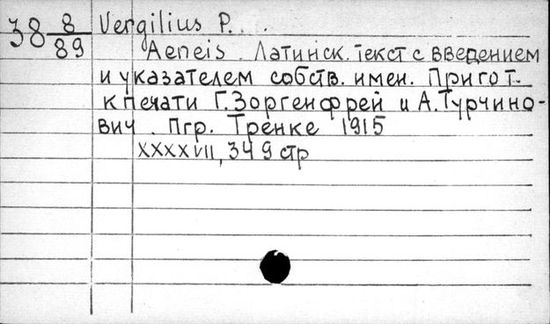 38 8/89 Vergilius P. . .
Aeneis. Латинск. текст с введением
и указателем собств. имен. Пригот.
к печати Г. Зоргенфрей и А. Турчино-
вич. Пгр. Тренке 1915
XXXXVII, 349 стр